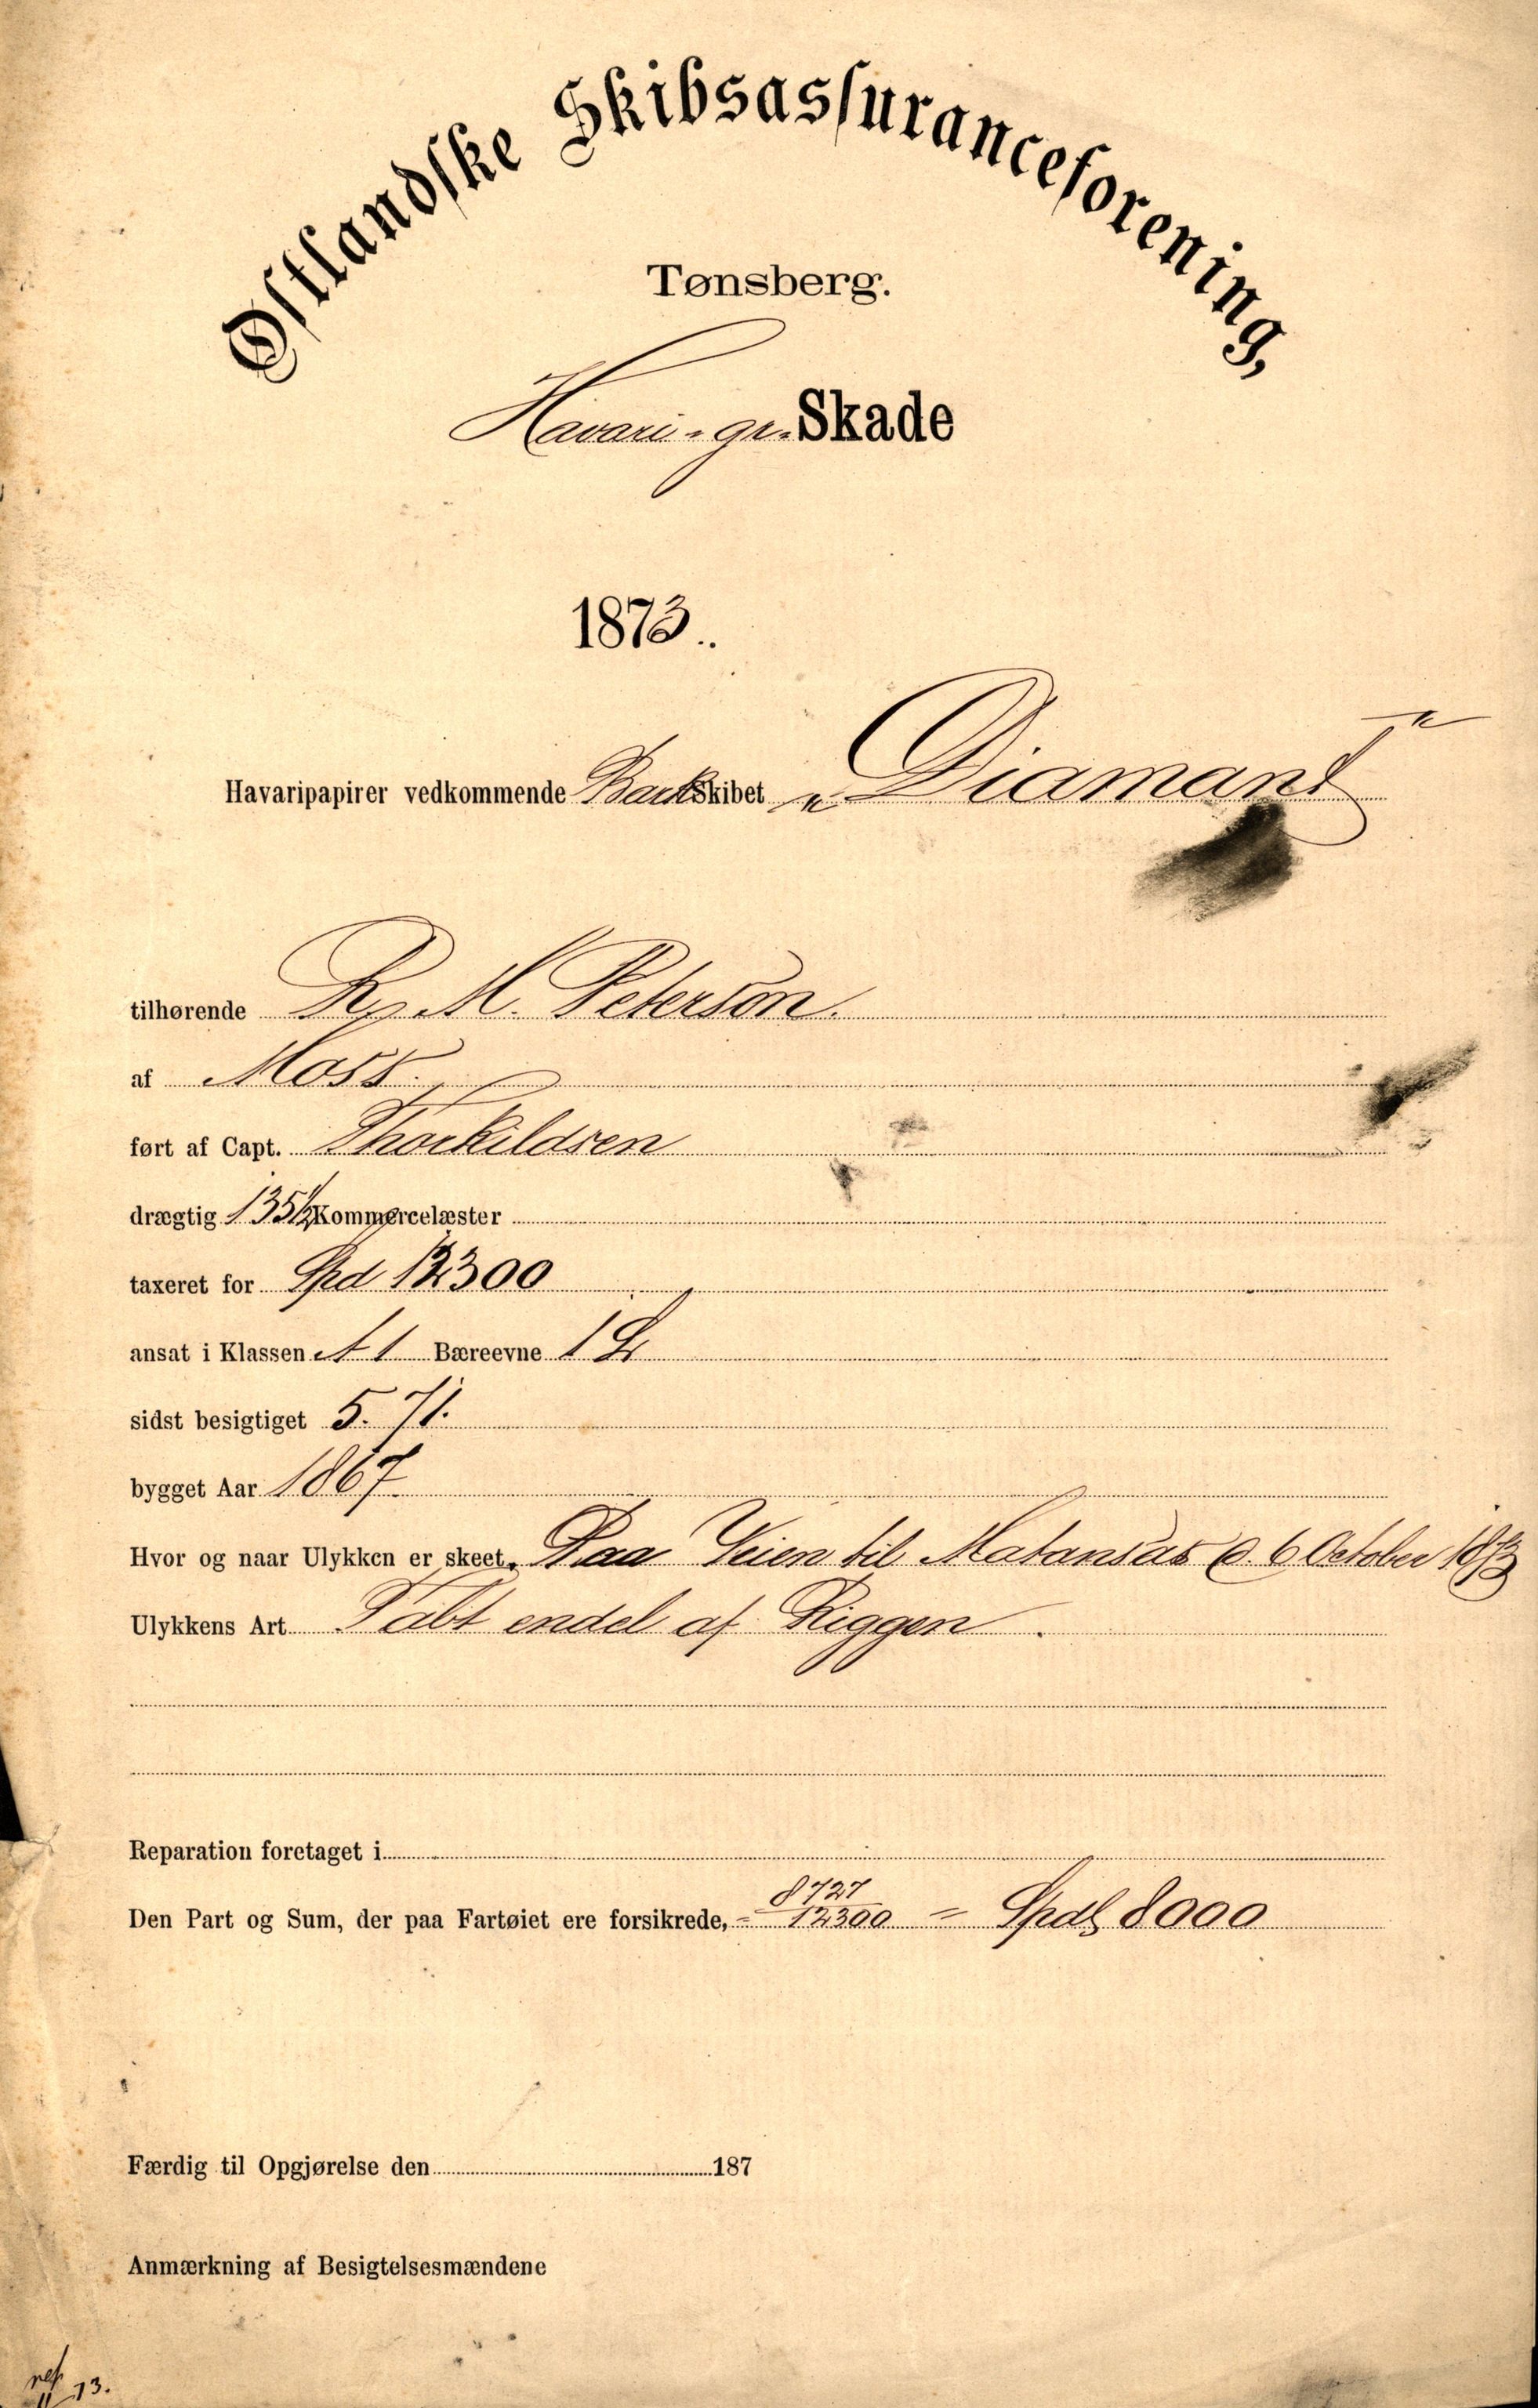 Østlandske Skibsassuranceforening,
Tønsberg.
Havari-gr. Skade
1873.
Havaripapirer vedkommende Bark Skibet „Diamant"
tilhørende M. Peterson.
af Moss.
ført af Capt. Thorkildsen
drægtig 135½ Kommercelæster
taxeret for Spd 12300
ansat i Klassen A 1 Bæreevne 1
sidst besigtiget 5. 71.
bygget Aar 1867.
Hvor og naar Ulykken er skeet. Paa Veien til Matansas d. 6 October 1873
Ulykkens Art Tabt endel af Riggen.
Reparation foretaget i
Den Part og Sum, der paa Fartøiet ere forsikrede, = 8727/12300 = Spd 8000
Færdig til Opgjørelse den 187
Anmærkning af Besigtelsesmændene
73.